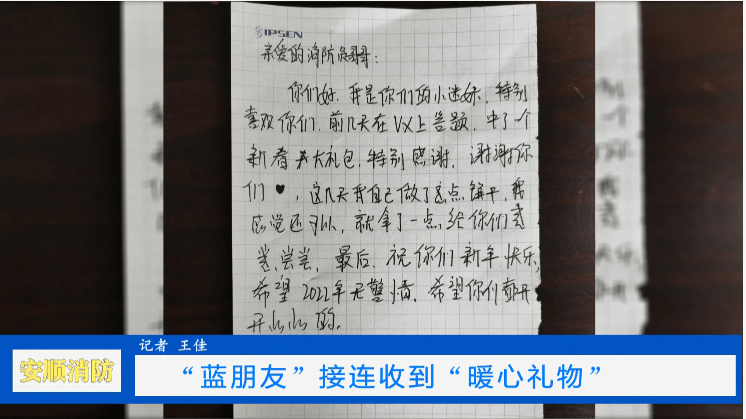 IPSEN
亲爱的消防员哥哥:
你们好,我是你们的小迷妹,特别
喜欢你们,前几天在VX上答题,中了一个
新春大礼包,特别感谢,谢谢你
们♥,这几天我自己做了点饼干,我
感觉还可以,就拿了一点给你们
尝尝,最后,祝你们新年快乐,
希望2022年无警情,希望你们都开
开心心的。
记者 王佳
安顺消防
“蓝朋友”接连收到“暖心礼物”